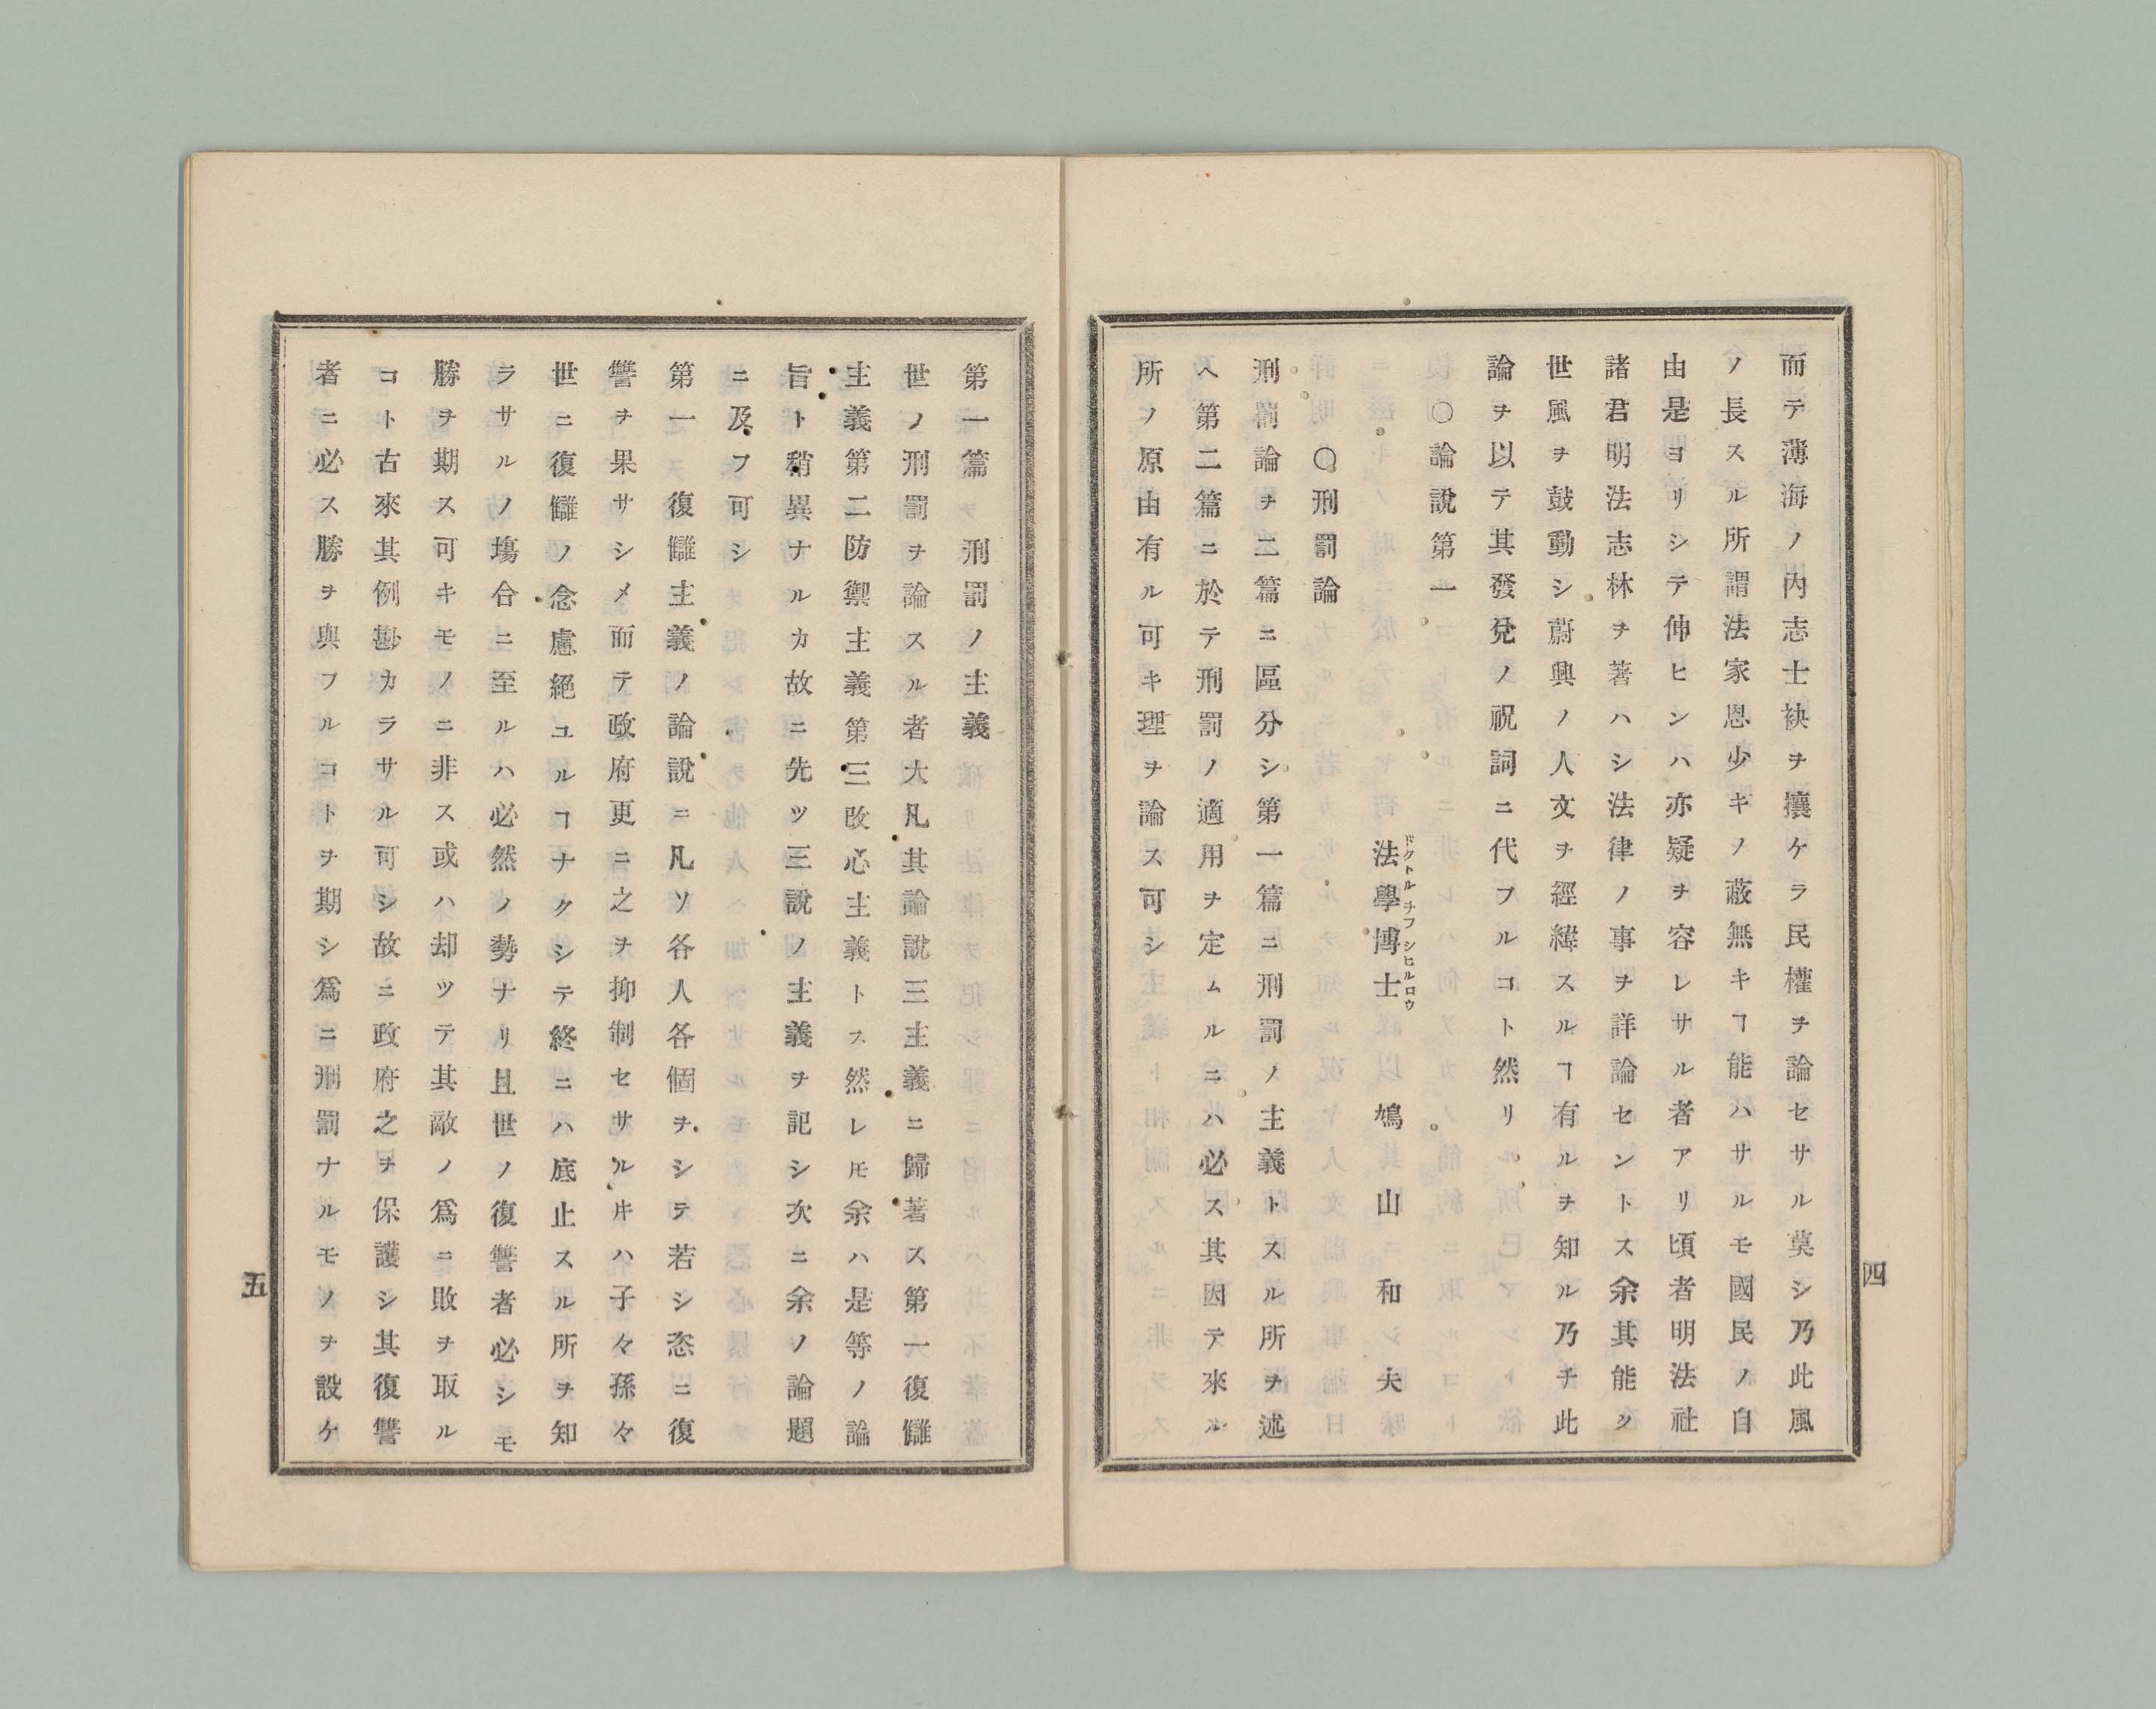 而テ薄海ノ內志士袂ヲ攘ケラ民權ヲ論セサル莫シ乃此風
ノ長スル所謂法家恩少キノ蔽無キヿ能ハサルモ國民ノ自
由是ヨリシテ伸ヒンハ亦疑ヲ容レサル者アリ頃者明法社
諸君明法志林ヲ著ハシ法律ノ事ヲ詳論セントス余其能ク
世風ヲ鼓動シ蔚興ノ人文ヲ經緯スルヿ有ルヲ知ル乃チ此
論ヲ以テ其發兌ノ祝詞ニ代フルコト然リ
○論說第一
ドクトルチフシヒルロウ
法學博士 鳩山和夫
○刑罰論
刑罰論ヲ二篇ニ區分シ第一篇ニ刑罰ノ主義トスル所ヲ述
ヘ第二篇ニ於テ刑罰ノ適用ヲ定ムルニハ必ス其因テ來ル
所ノ原由有ル可キ理ヲ論ス可シ
四
第一篇 刑罰ノ主義
世ノ刑罰ヲ論スル者大凡其論說三主義ニ歸著ス第一復讎
主義第二防禦主義第三改心主義トス然レ𪜈余ハ是等ノ論
旨ト稍異ナルカ故ニ先ツ三說ノ主義ヲ記シ次ニ余ノ論題
ニ及フ可シ
第一 復讎主義ノ論說ニ凡ソ各人各個ヲシテ若シ恣ニ復
讐ヲ果サシメ而テ政府更ニ之ヲ抑制セサルキハ子々孫々
世ニ復讎ノ念慮絕ユルヿナクシテ終ニハ底止スル所ヲ知
ラサルノ塲合ニ至ルハ必然ノ勢ナリ且世ノ復讐者必シモ
勝ヲ期ス可キモノニ非ス或ハ却ツテ其敵ノ爲ニ敗ヲ取ル
コト古來其例尠カラサル可シ故ニ政府之ヲ保護シ其復讐
者ニ必ス勝ヲ與フルコトヲ期シ爲ニ刑罰ナルモノヲ設ケ
五